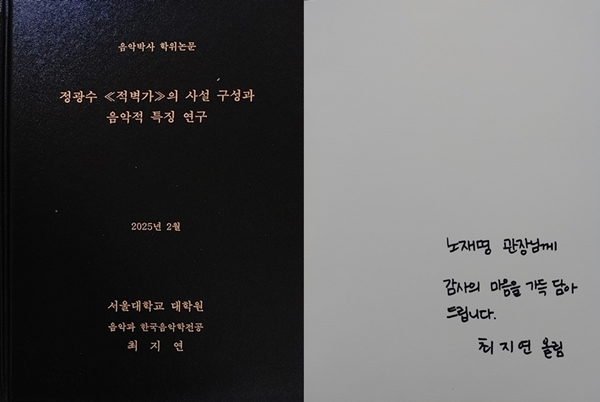 음악박사 학위논문
정광수 ≪적벽가≫의 사설 구성과
음악적 특징 연구
2025년 2월
서울대학교 대학원
음악과 한국음악학전공
최 지 연
노재명 관장님께
감사의 마음을 가득 담아
드립니다.
최지연 올림